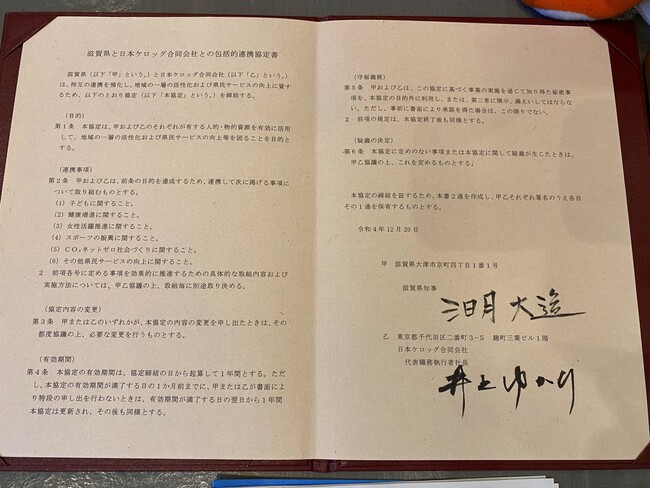 滋賀県と日本ケロッグ合同会社との包括的連携協定書
滋賀県（以下「甲」という。）と日本ケロッグ合同会社（以下「乙」という。）
は、相互の連携を強化し、地域の一層の活性化および県民サービスの向上に資す
るため、以下のとおり協定（以下「本協定」という。）を締結する。
（目的）
第１条　本協定は、甲および乙のそれぞれが有する人的・物的資源を有効に活用
して、地域の一層の活性化および県民サービスの向上等を図ることを目的と
する。
（連携事項）
第２条　甲および乙は、前条の目的を達成するため、連携して次に掲げる事項に
ついて取り組むものとする。
（1）子どもに関すること。
（2）健康増進に関すること。
（3）女性活躍推進に関すること。
（4）スポーツの振興に関すること。
（5）CO₂ネットゼロ社会づくりに関すること。
（6）その他県民サービスの向上に関すること。
２　前項各号に定める事項を効果的に推進するための具体的な取組内容および
実施方法については、甲乙協議の上、取組毎に別途取り決める。
（協定内容の変更）
第３条　甲または乙のいずれかが、本協定の内容の変更を申し出たときは、その
都度協議の上、必要な変更を行うものとする。
（有効期間）
第４条　本協定の有効期間は、協定締結の日から起算して１年間とする。ただ
し、本協定の有効期間が満了する日の１か月前までに、甲または乙が書面によ
り特段の申し出を行わないときは、有効期間が満了する日の翌日から１年間
本協定は更新され、その後も同様とする。
（守秘義務）
第５条　甲および乙は、この協定に基づく事業の実施を通じて知り得た秘密事
項を、本協定の目的外に利用し、または、第三者に開示、漏えいしてはならな
い。ただし、事前に書面により承認を得た場合は、この限りでない。
２　前項の規定は、本協定終了後も同様とする。
（疑義の決定）
第６条　本協定に定めのない事項または本協定に関して疑義が生じたときは、
甲乙協議の上、これを定めるものとする。
本協定の締結を証するため、本書２通を作成し、甲乙それぞれ署名のうえ各自
その１通を保有するものとする。
令和４年12月20日
甲　滋賀県大津市京町四丁目１番１号
滋賀県知事
三日月大造
乙　東京都千代田区二番町３−５　麹町三葉ビル１階
日本ケロッグ合同会社
代表職務執行者社長
井上ゆかり